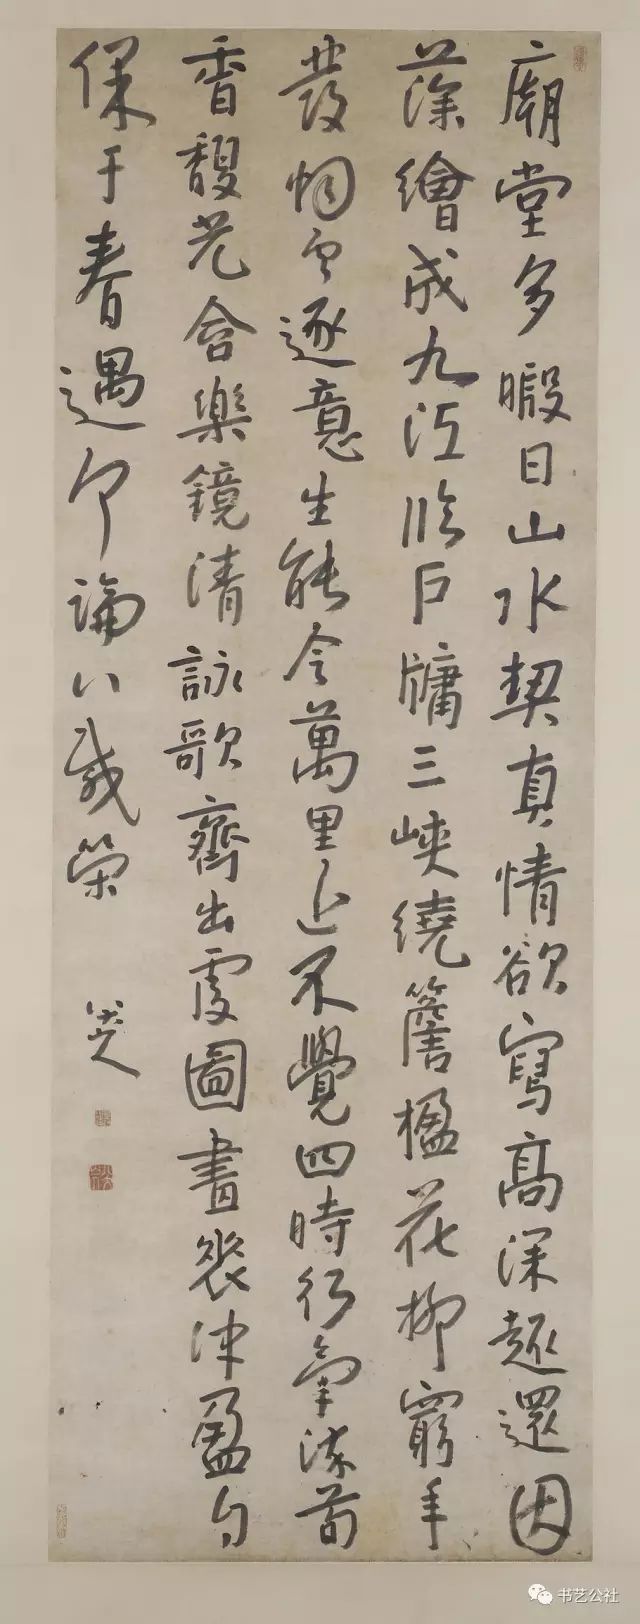 廟堂多暇日山水契真情欲寫高深趣還因
藻繪成九江臨戶牖三峽繞簷楹花柳窮年
發烟雲逐意生能令萬里近不覺四時行氣染荀
香馥光含樂鏡清詠歌齊出處圖畫表沖盈自
保千春遇何論八載榮
八大山人
书艺公社